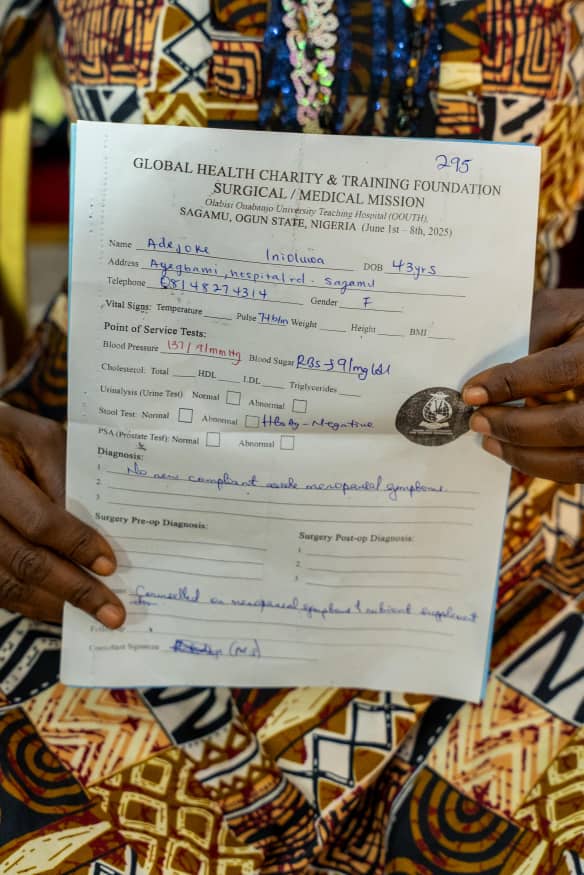 295
GLOBAL HEALTH CHARITY & TRAINING FOUNDATION
SURGICAL / MEDICAL MISSION
Olabisi Onabanjo University Teaching Hospital (OOUTH),
SAGAMU, OGUN STATE, NIGERIA (June 1st – 8th, 2025)
Name Adejoke Inioluwa DOB 43yrs
Address Ayegbami, hospital rd. Sagamu
Telephone 08148274314 Gender F
Vital Signs: Temperature Pulse 74b/m Weight Height BMI
Point of Service Tests:
Blood Pressure 137/91mmHg Blood Sugar RBS 91mg/dl
Cholesterol: Total HDL LDL Triglycerides
Urinalysis (Urine Test) Normal Abnormal
Stool Test: Normal Abnormal HbsAg - Negative
PSA (Prostate Test): Normal Abnormal
Diagnosis:
1. No new compliant menopausal symptoms
2.
3.
Surgery Pre-op Diagnosis: Surgery Post-op Diagnosis:
1.
2.
3.
Counselled on menopausal symptoms & nutrient supplement
Consultant Signature